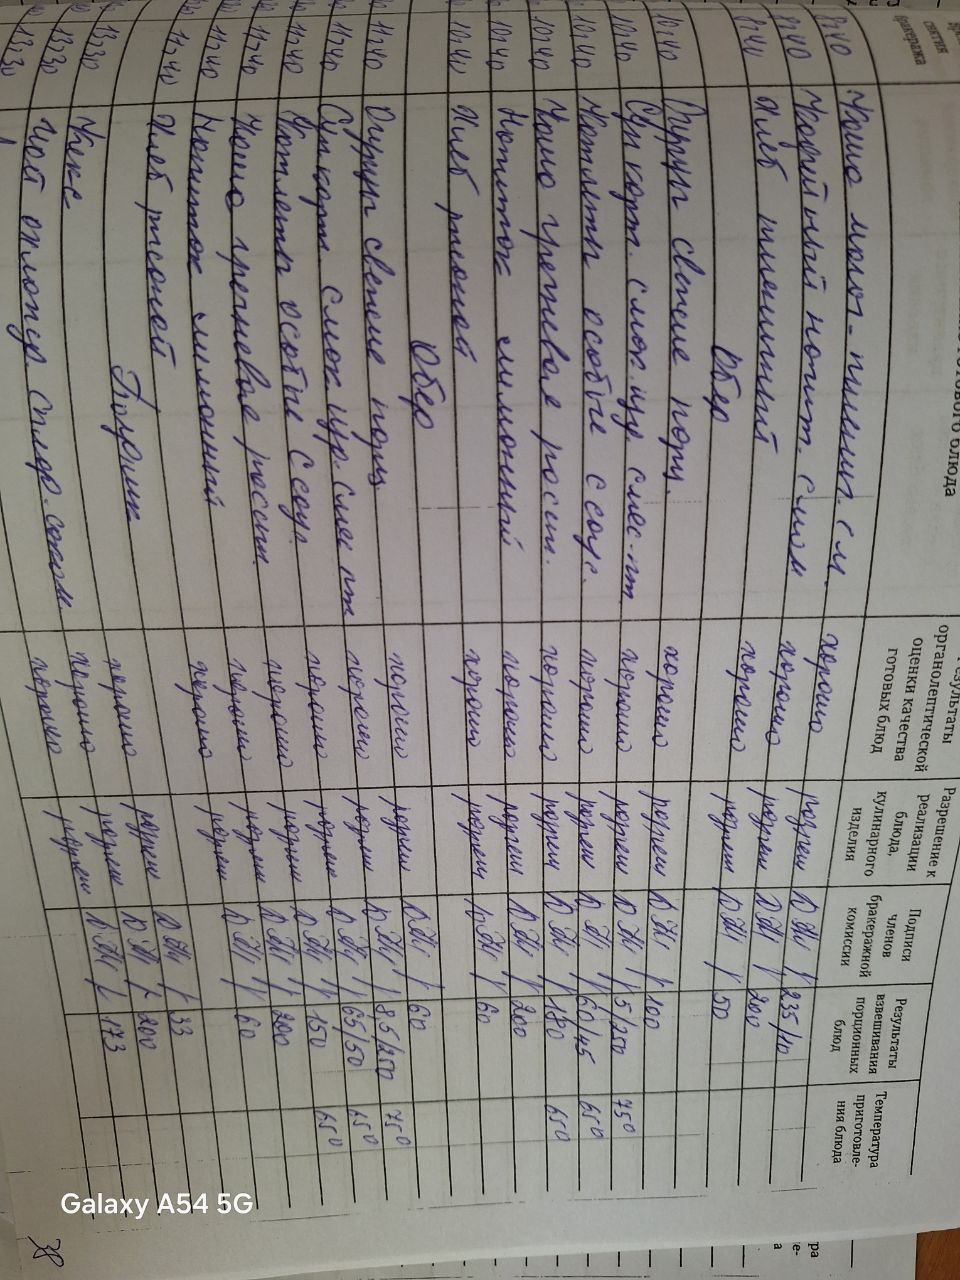 снятия бракеража
готового блюда
Результаты органолептической оценки качества готовых блюд
Разрешение к реализации блюда, кулинарного изделия
Подписи членов бракеражной комиссии
Результаты взвешивания порционных блюд
Температура приготовле-ния блюда
8:40 Каша молоч- пшенич. с м. хорошо разреш 235/10
8:40 Кофейный напит. с мол хорошо разреш 200
8:40 Хлеб пшеничный хорошо разреш 50
Обед
10:40 Огурцы свежие порц. хорошо разреш 100
10:40 Суп карт. с мак. изд смес-пт хорошо разреш 5/250 75°
10:40 Котлеты особые с соус. хорошо разреш 60/45 65°
10:40 Каша гречневая рассып. хорошо разреш 180 65°
10:40 Напиток лимонный хорошо разреш 200
10:40 Хлеб ржаной хорошо разреш 60
Обед
11:40 Огурцы свежие порц. хорошо разреш 60
11:40 Суп карт с мак. изд. смес пт хорошо разреш 8,5/250 75°
11:40 Котлеты особые с соус. хорошо разреш 65/50 65°
11:40 Каша гречневая рассып. хорошо разреш 150 65°
11:40 Напиток лимонный хорошо разреш 200
11:40 Хлеб ржаной хорошо разреш 60
Полдник
13:30 Кекс хорошо разреш 33
13:30 Чай хорошо разреш 200
13:30 хорошо разреш 173
38
Galaxy A54 5G